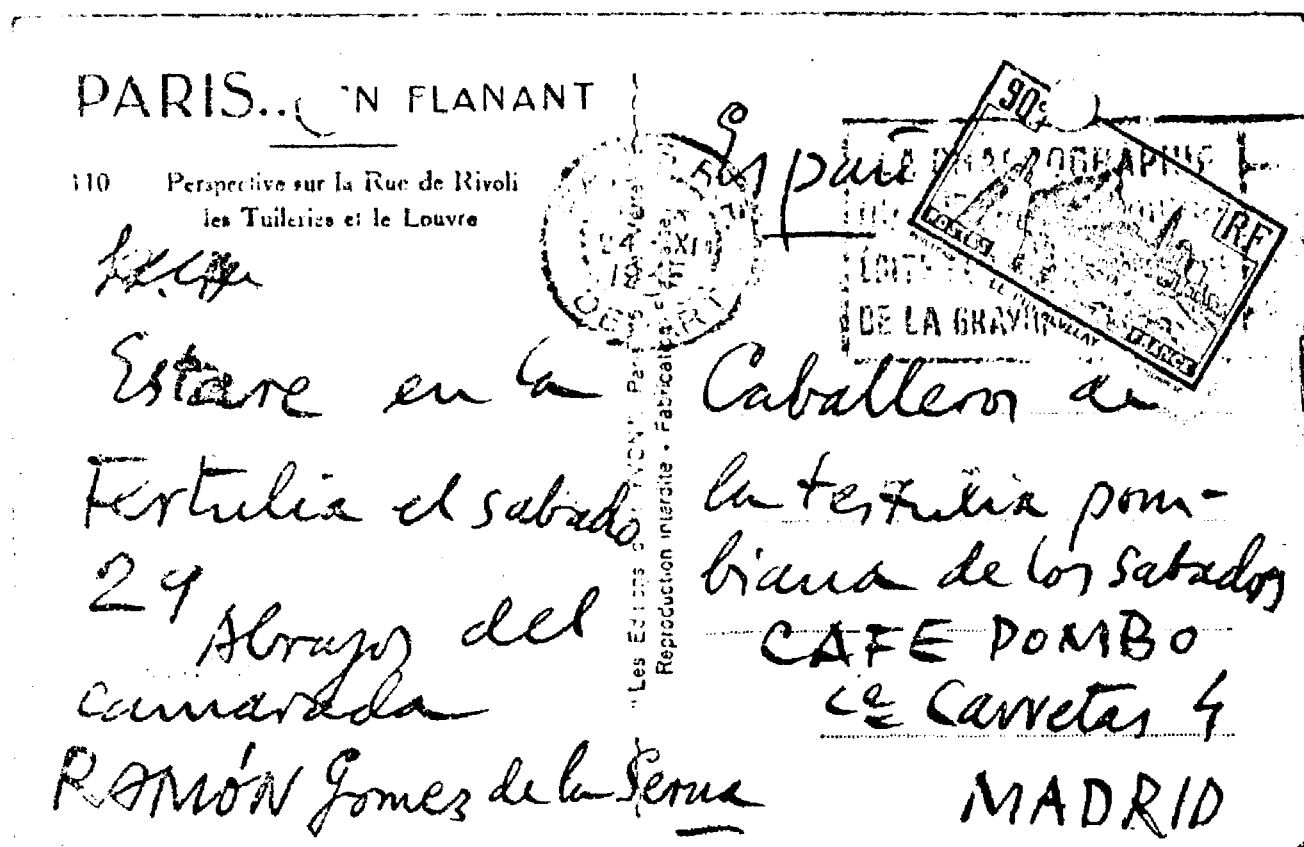 PARIS... 'N FLANANT
110 Perspective sur la Rue de Rivoli
les Tuileries et le Louvre
Estare en la
Tertulia el sabado
29
Abrazos del
camarada
RAMÓN Gomez de la Serna
"Les Editions d'" YVON" Paris
Reproduction interdite - Fabrication
24 XII
España
90c
RF
POSTES
LE PUY EN VELAY
FRANCE
LA CHALCOGRAPHIE
DE LA GRAVURE
Caballeros de
la tertulia pom-
biana de los sabados
CAFE POMBO
Ce Carretas 4
MADRID